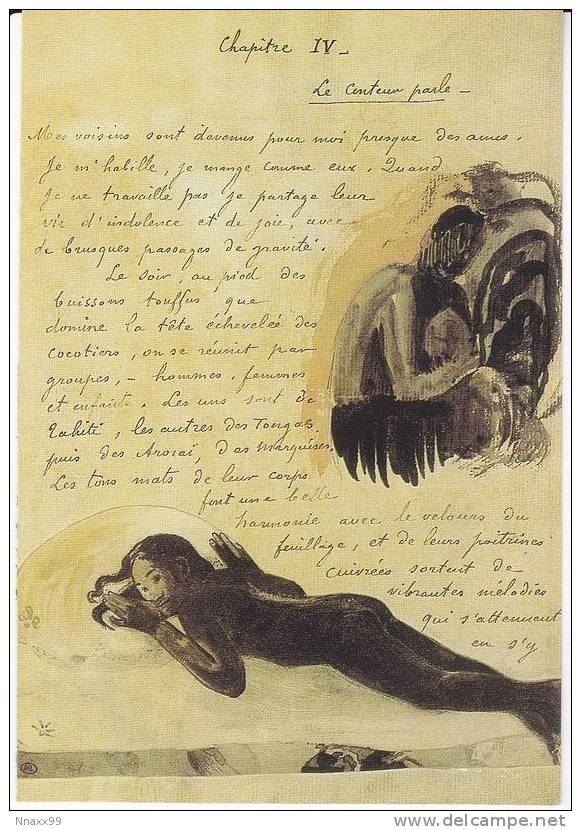 Chapitre IV_
Le Conteur parle_
Mes voisins sont devenus pour moi presque des amis.
Je m'habille, je mange comme eux. Quand
je ne travaille pas je partage leur
vie d'indolence et de joie, avec
de brusques passages de gravité.
Le soir, au pied des
buissons touffus que
domine la tête échevelée des
cocotiers, on se réunit par
groupes, - hommes, femmes
et enfants. Les uns sont de
Tahiti, les autres des Tongas,
puis des Arorai, des Marquises.
Les tons mats de leur corps
font une belle
harmonie avec le velours du
feuillage, et de leurs poitrines
cuivrées sortent de
vibrantes mélodies
qui s'atténuent
en s'y
ML
Nnaxx99
delcampe.net